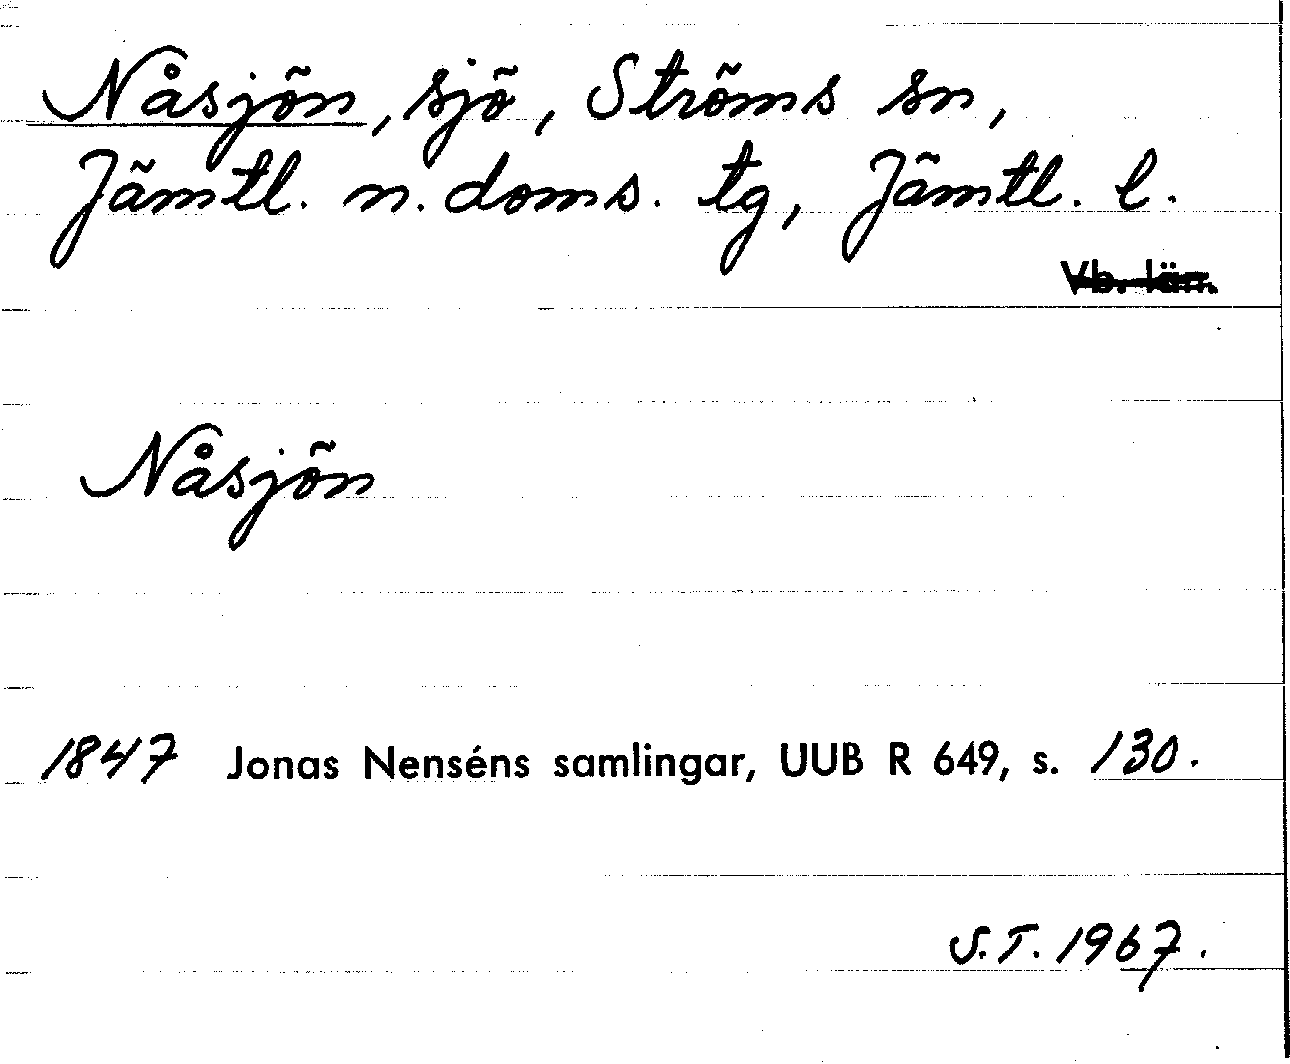 Nåsjön, sjö, Ströms sn,
Jämtl. n. doms. tg, Jämtl. l.
Vb. län.
Nåsjön
1847 Jonas Nenséns samlingar, UUB R 649, s. 130.
S.T. 1967.